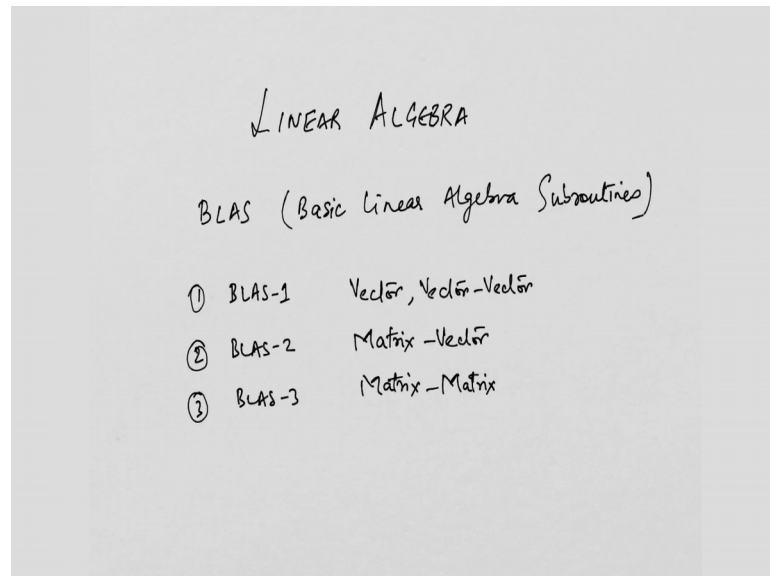 LINEAR ALGEBRA
BLAS (Basic Linear Algebra Subroutines)
① BLAS-1 Vector, Vector-Vector
② BLAS-2 Matrix-Vector
③ BLAS-3 Matrix-Matrix